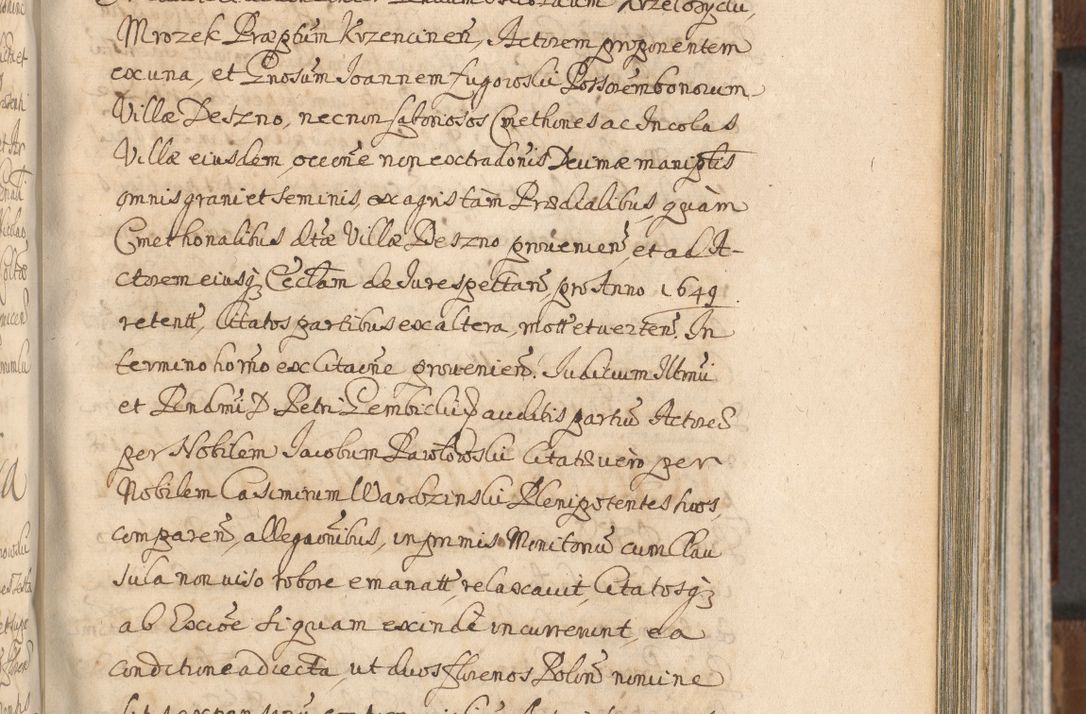 Mrozek Præptum Krzencinen, Actorem proponentem
ex una, et Gnosum Joannem Ługowski Possorem bonorum
Villæ Deszno, necnon Laboriosos Cmethones ac Incolas
Villæ eiusdem, occone non extradonis Decimæ maniptis
omnis grani et seminis, ex agris tàm Prædialibus, quàm
Cmethonalibus dtæ Villæ Deszno provenien, et ad A-
ctorem eiusq Ecclam de Jure spectan, pro Anno 1649
retent, Citatos partibus ex altera, mott et verten. In
termino horno ex Citaone provenien. Judicium Illmi
et Rendmi D Petri Gembicki auditis partiu Actores
per Nobilem Jacobum Pawłowski Citats verò per
Nobilem Casimirum Wardzinski Plenipotentes suos,
comparen, allegaonibus, in primis Monitoriu cum Clau
sula non viso robore emanatt, relaxavit, Citatosq
ab Excioe si quam exinde incurrerunt, ea
conditione adiecta, ut duos florenos Polon nomine